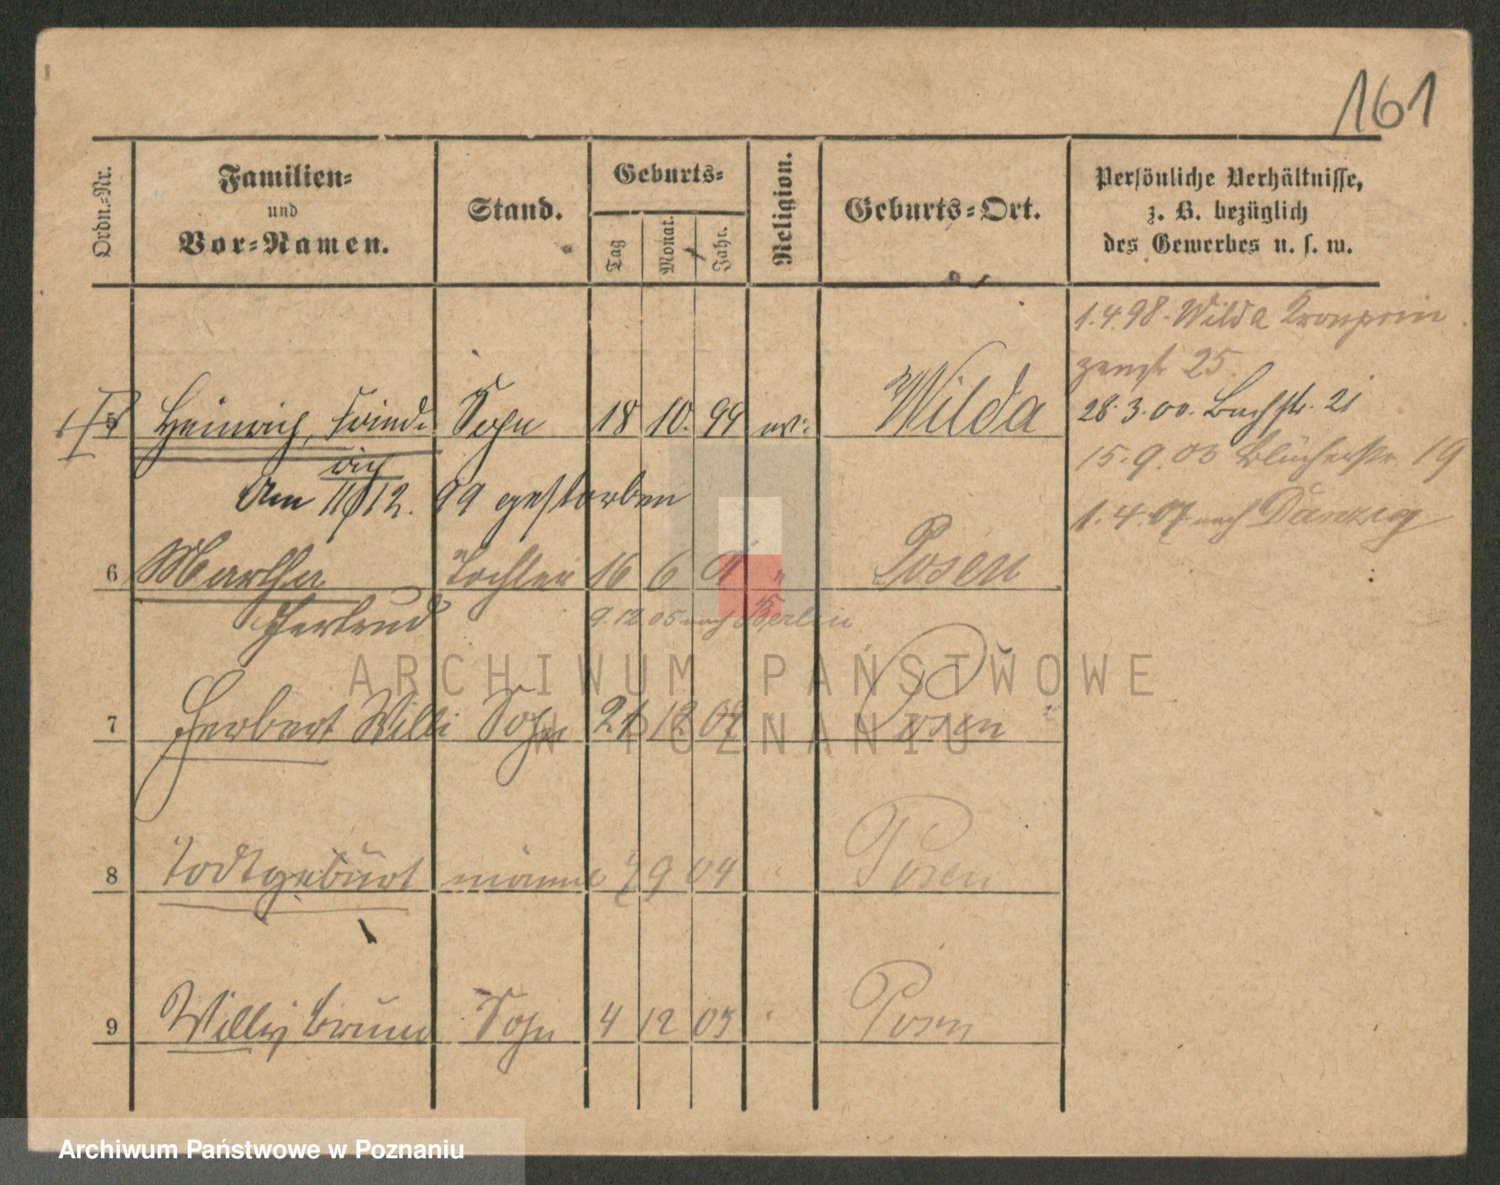 161
Ordn.-Nr.
Familien-
und
Vor-Namen.
Stand.
Geburts-
Tag
Monat.
Jahr.
Religion.
Geburts-Ort.
Persönliche Verhältnisse,
z. B. bezüglich
des Gewerbes u. s. w.
1.4.98. Wilda Kronprin
zenst 25.
5 Heinrich, Fried- Sohn 18 10. 99 ev. Wilda
rich
28.3.00. Bachstr. 21
15.9.00 Blücherstr. 19
Am 11/12. 99 gestorben
1.4.07 nach Danzig
6 Martha Tochter 16 6 " Posen
Gertrud 9.12.05 nach Berlin
ARCHIWUM PAŃSTWOWE
W POZNANIU
7 Herbert Willi Sohn 21 12 Posen
8 Todtgeburt männl 7 9 04 Posen
9 Willy Bruno Sohn 4 12 05 Posen
Archiwum Państwowe w Poznaniu